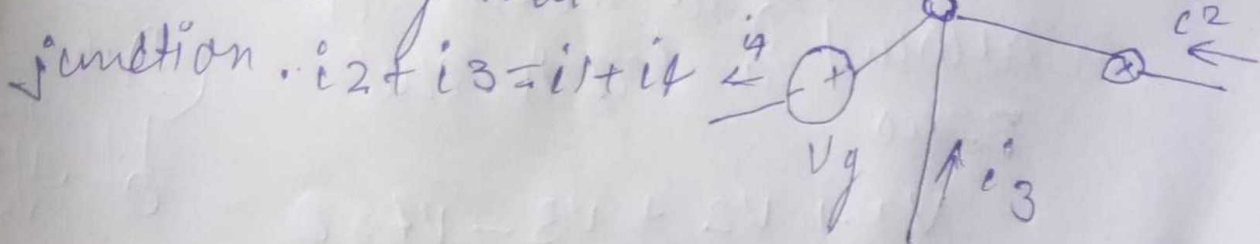 junction. i2+i3=i1+i4
i4
i2
+
-
x
Vg
i3